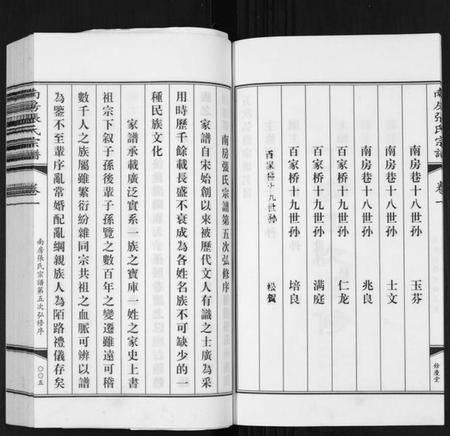 南房張氏宗譜
卷一
餘慶堂
南房巷十八世孙 玉芬
南房巷十八世孙 士文
南房巷十八世孙 兆良
百家桥十九世孙 仁龙
百家桥十九世孙 满庭
百家桥十九世孙 培良
百家桥十九世孙 松贺
南房張氏宗譜第五次弘修序
家譜自宋始創以來被歷代文人有識之士廣為采
用時歷千餘載長盛不衰成為各姓名族不可缺少的一
種民族文化
家譜承載廣泛實系一族之寶庫一姓之家史上書
祖宗下叙子孫後輩子孫覽之數百年之變遷雖遠可稽
數千人之族屬雖繁衍紛雜同宗共祖之血脈可辨以譜
為鑒不至輩序亂常婚配亂綱親族人為陌路禮儀存矣
南房張氏宗譜
卷一
南房張氏宗譜第五次弘修序
〇〇五